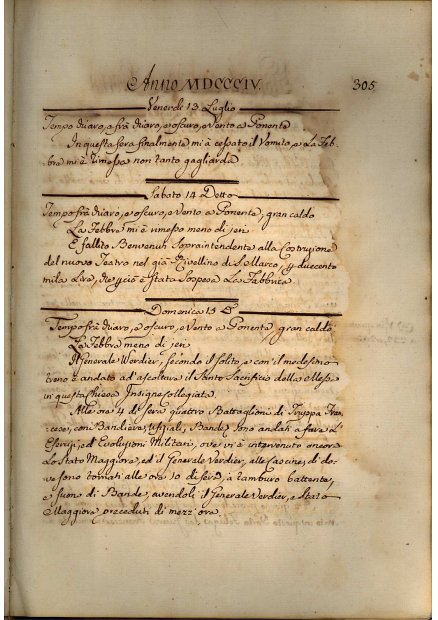 Anno MDCCCIV.
305
Venerdì 13 Luglio
Tempo chiaro, e frà chiaro, e oscuro, e Vento a Ponente
In questa sera finalmente mi è cessato il Vomito, e La Feb-
bra mi è rimessa non tanto gagliarda
Sabato 14 Detto
Tempo frà chiaro, e oscuro, e Vento a Ponente, gran caldo
La Febbra mi è rimessa meno di jeri
È fallito Benvenuti Sopraintendente alla Costruzione
del nuovo Teatro nel già Rivellino di S. Marco p duecento
mila Lire, che p ciò è stata Sospesa La Fabbrica.
Domenica 15 D°
Tempo frà chiaro, e oscuro, e Vento a Ponente, gran caldo
La Febbra meno di jeri
Il Generale Verdier, secondo il solito, e con il medesimo
treno è andato ad' ascoltare il Santo Sacrificio della Messa
in questa Chiesa Insigne Collegiata.
Alle ore 4 di sera quattro Battaglioni di Truppa Fran-
cese, con Bandiere, Ufiziali, e Bande, sono andati a fare L'
Esercizj, ed Evoluzioni Militari, ove vi è intervenuto ancora
Lo Stato Maggiore, ed il Generale Verdier, alle Cascine, di do-
ve sono tornati alle ore 10 di sera, a tamburo battente,
e suono di Bande, avendoli il Generale Verdier, e Stato
Maggiore preceduti di mezz' ora.